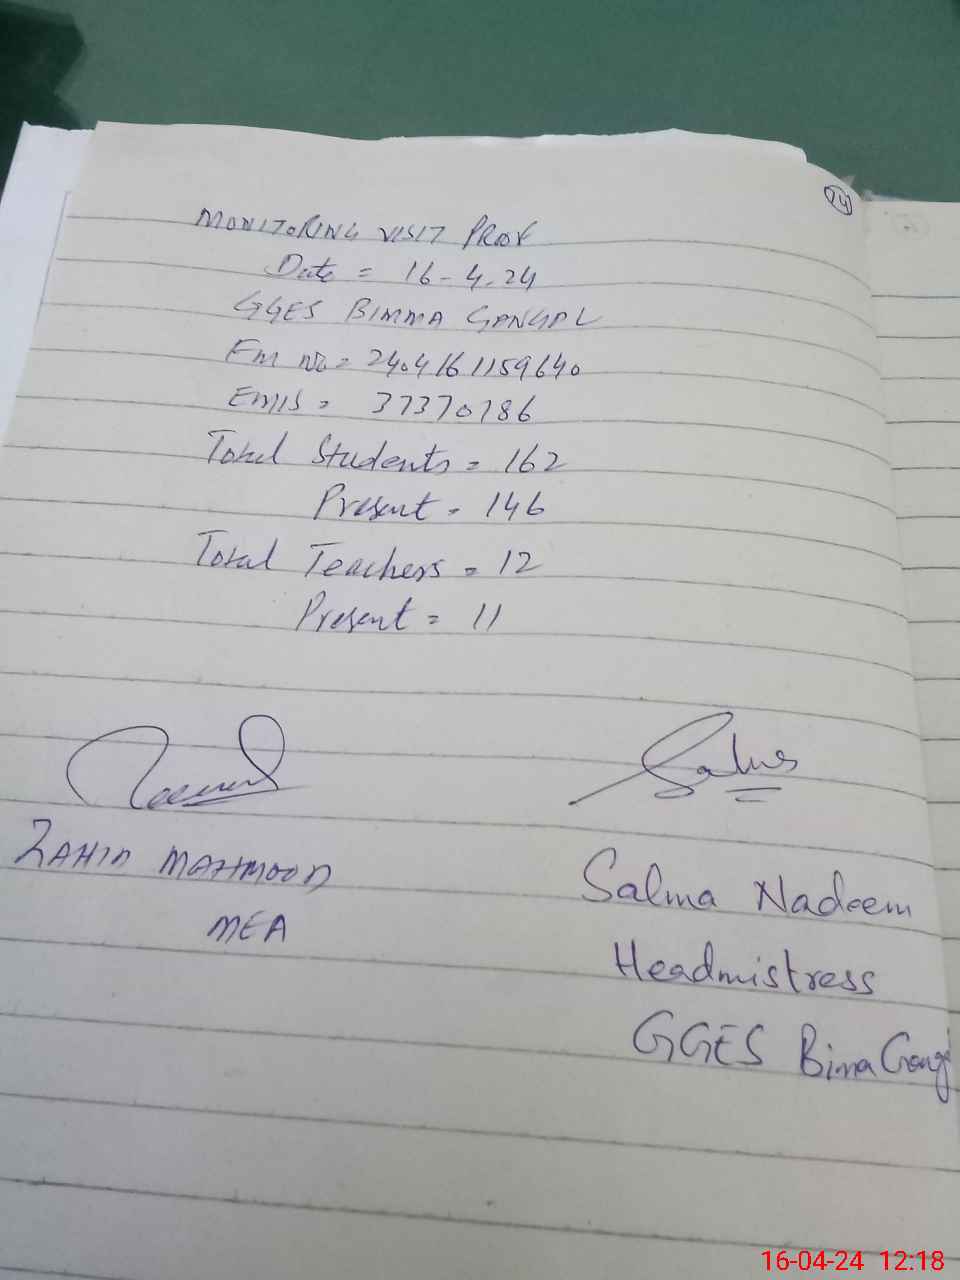 24
MONITORING VISIT PROF
Date = 16-4-24
GGES BIMMA GANGAL
Fm no = 2404161159640
EMIS = 37370786
Total Students = 162
Present = 146
Total Teachers = 12
Present = 11
Salma
ZAHID MAHMOOD
Salma Nadeem
MEA
Headmistress
GGES Bima Gang
16-04-24 12:18